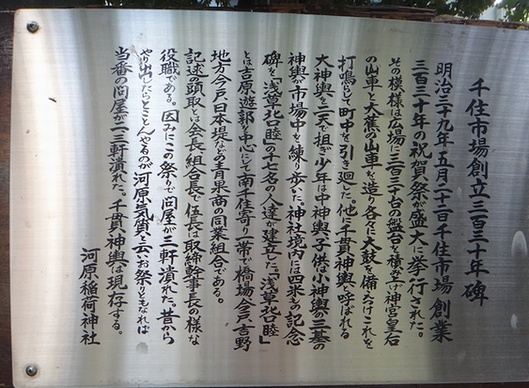 千住市場創立三百三十年碑
明治三十九年五月二十二日千住市場創業
三百三十年の祝賀祭が盛大に挙行された。
その模様は広場に三百三十台の盤台を積み上げ神宮皇后
の山車と大蕪の山車を造り各々に大鼓を備え付けこれを
打鳴らして町中を引き廻した。他に千貫神輿と呼ばれる
大神輿を二天で担ぎ少年は中神輿子供は小神輿の三基の
神輿が市場中を練り歩いた。神社境内には四米もの記念
碑を「浅草北口睦」の千七名の人達が建立した。「浅草北口睦」
とは吉原遊郭を中心にして南千住寄り一帯で橋場今戸吉野
地方今戸日本堤などの青果商の同業組合である。
記述の頭取とは会長組合長で伍長は取締幹事長の様な
役職である。因みにこの祭りで問屋が三軒潰れた。昔から
やり出したらとことんやるのが河原気質と云いお祭りともなれば
当番の問屋が二三軒潰れた。千貫神輿は現存する。
河原稲荷神社